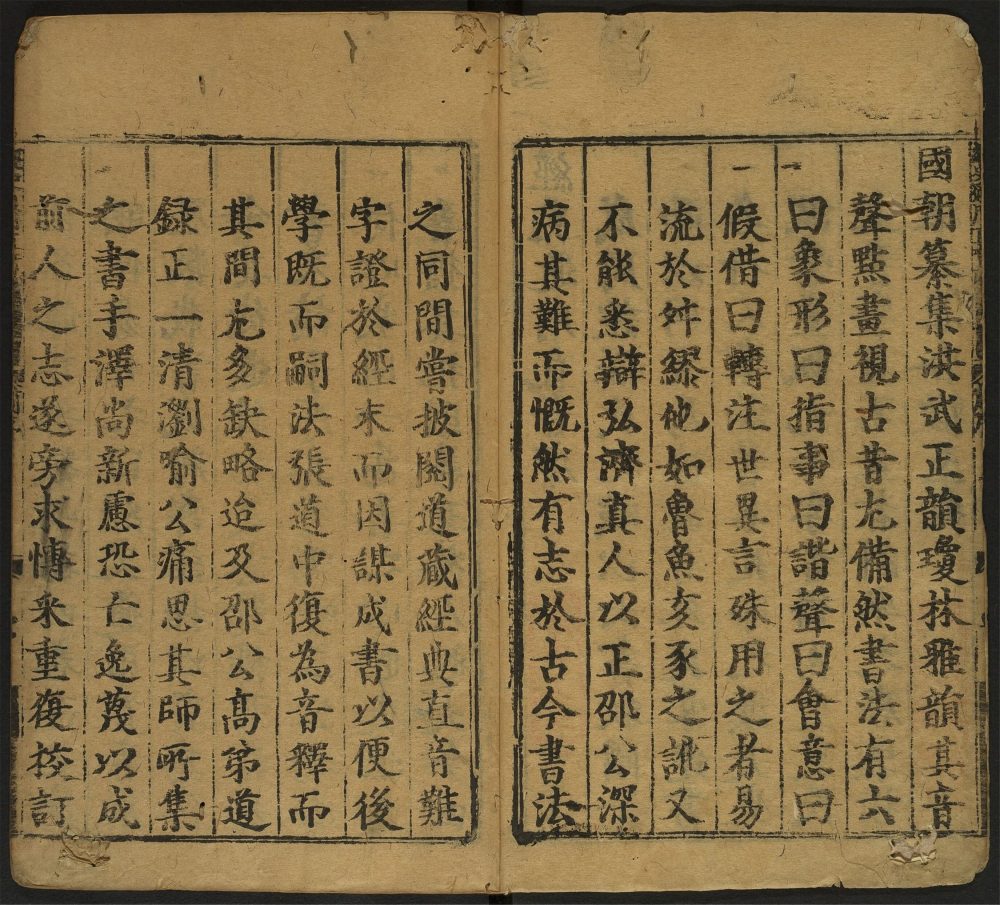 國朝纂集洪武正韻瓊林雅韻其音
聲點畫視古昔尤備然書法有六
曰象形曰指事曰諧聲曰會意曰
假借曰轉注世異言殊用之者易
流於舛繆他如魯魚亥豕之訛又
不能悉辯弘濟真人以正邵公深
病其難而慨然有志於古今書法
之同間嘗披閱道藏經典直音難
字證於經末而因謀成書以便後
學既而嗣法張道中復為音釋而
其間尢多缺略迨及邵公高第道
録正一清瀏喻公痛思其師所集
之書手澤尚新慮恐亡逸蔑以成
前人之志遂旁求慱采重復挍訂